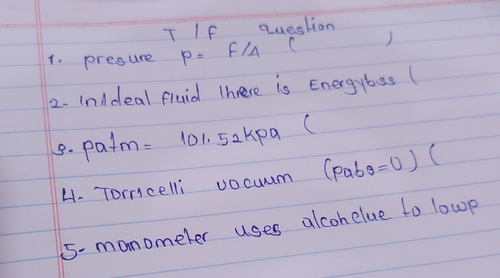 T / F question
1. presure p = F/A ( )
2- In Ideal fluid there is Energy loss (
3- patm = 101.52 kpa (
4- Torricelli vocuum (pabs=0) (
5- manometer uses alcohelue to low p